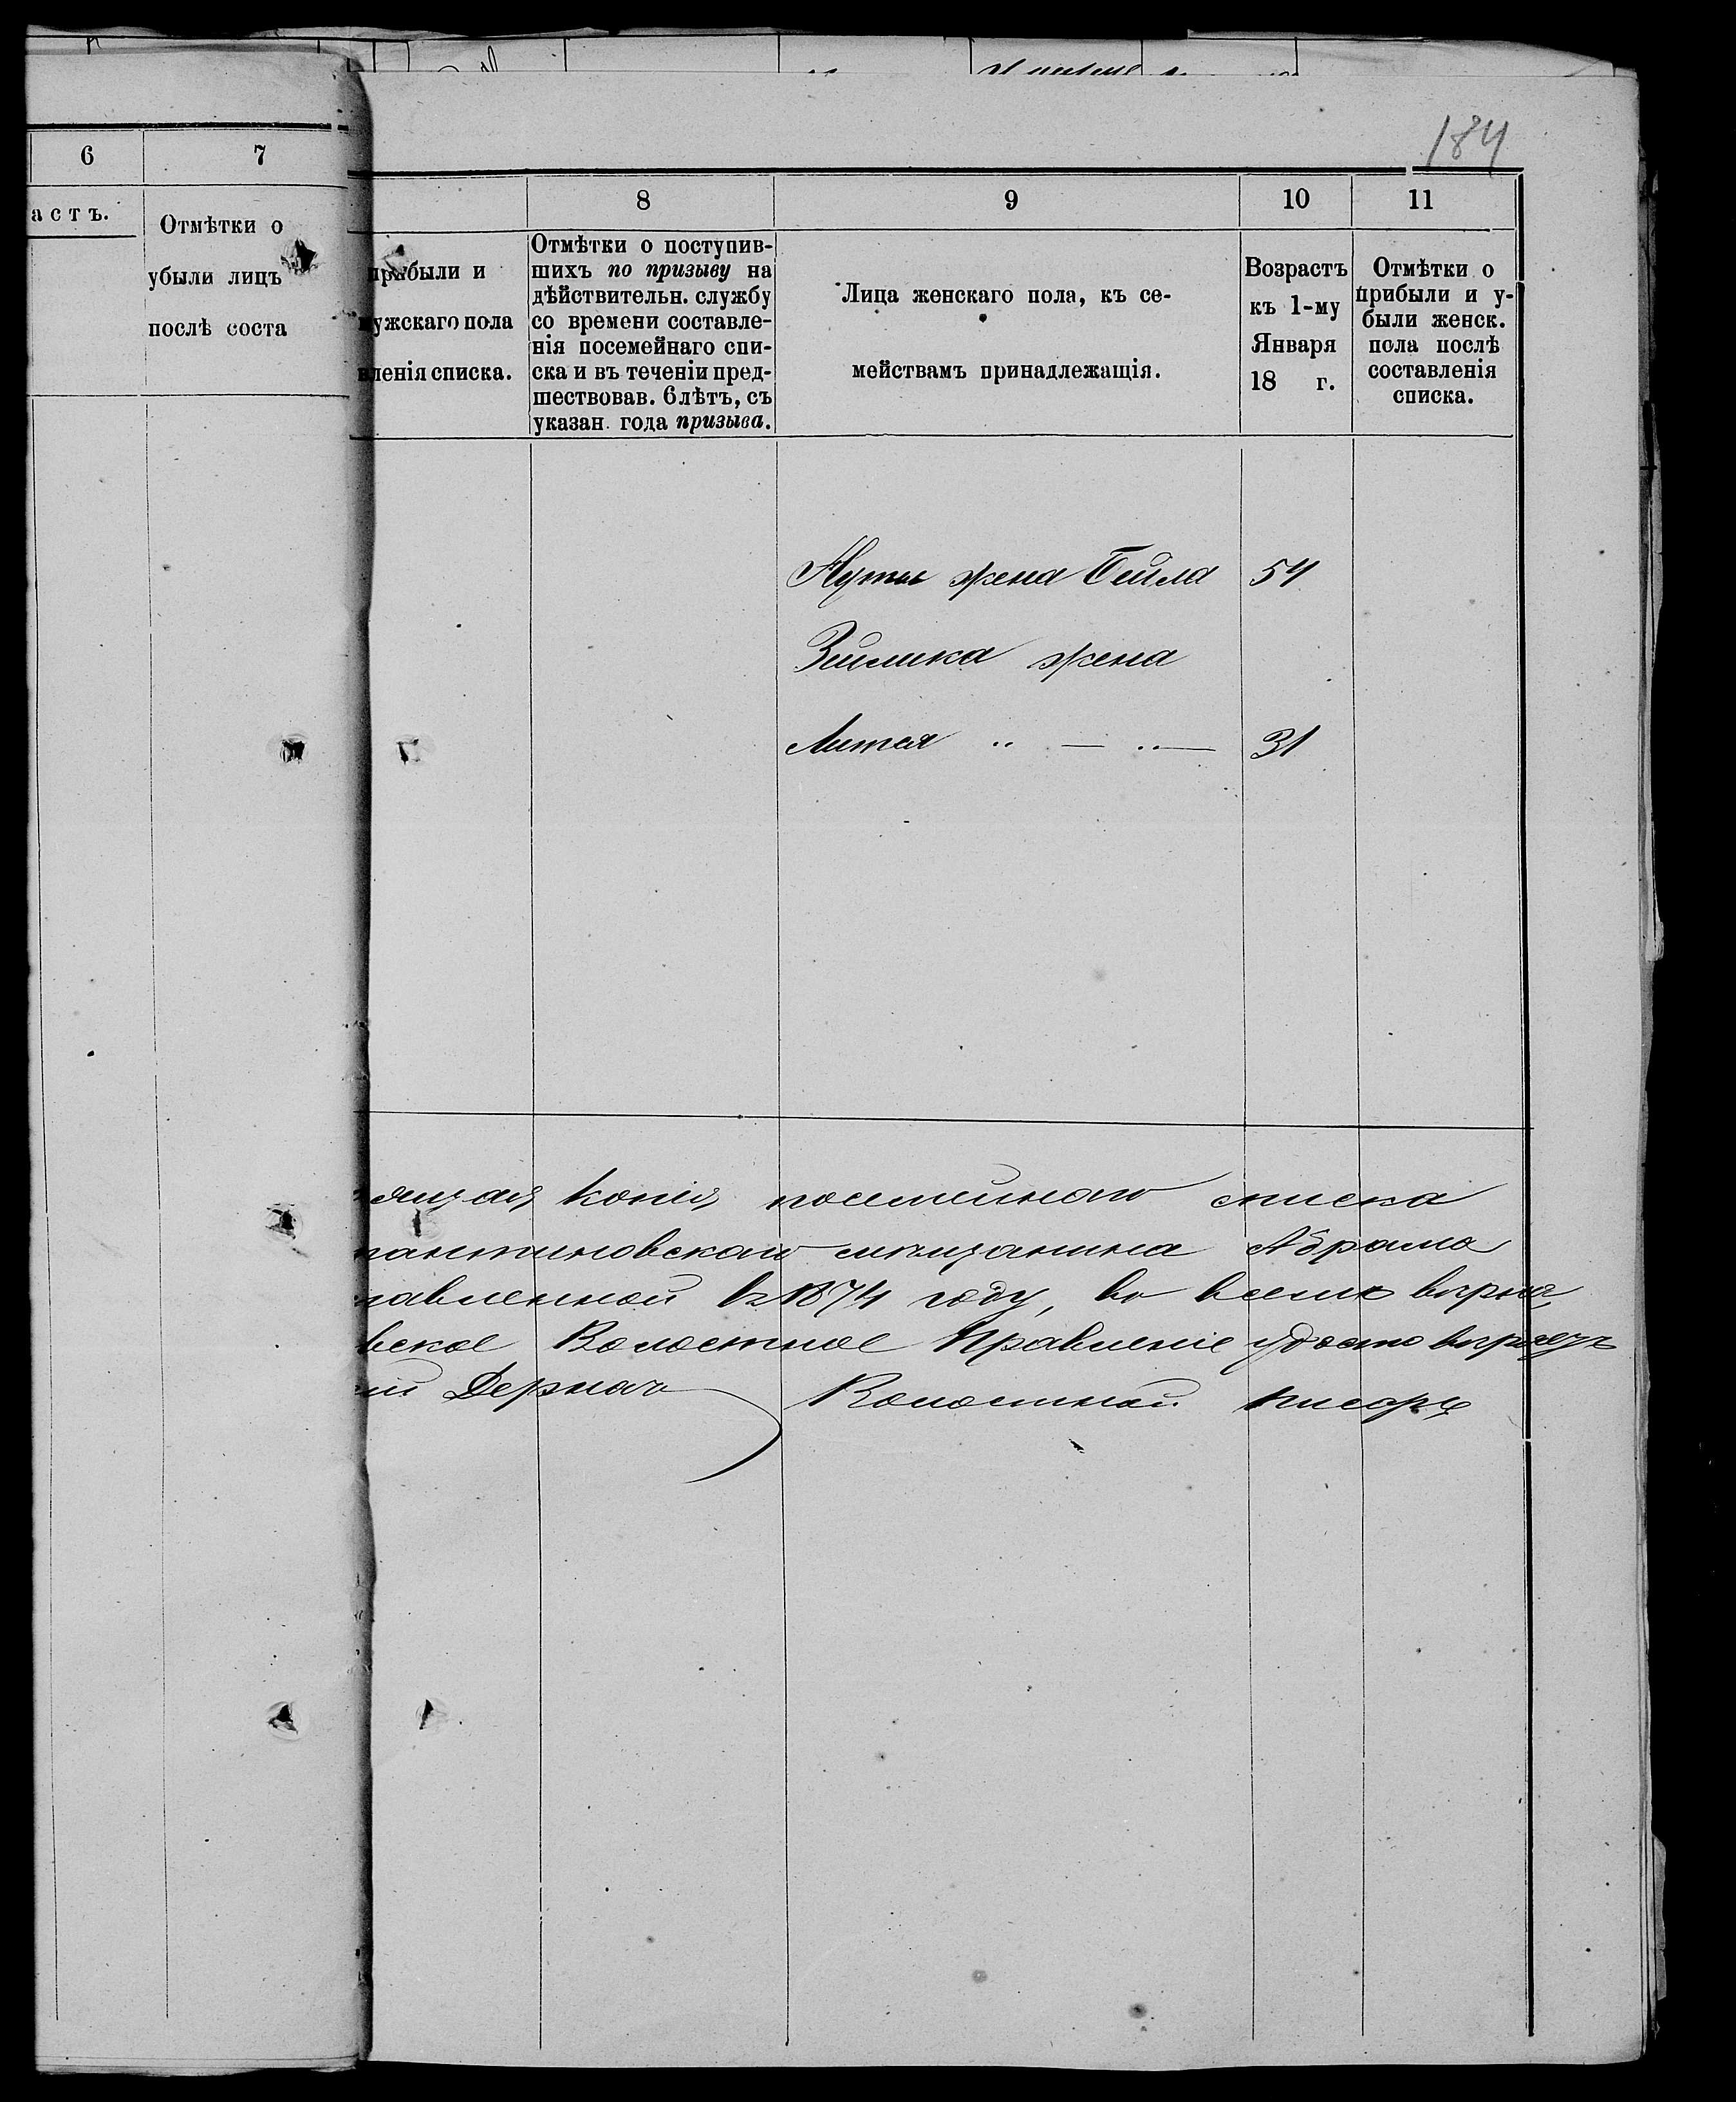 184
6 7
астъ.
Отмѣтки о
убыли лицъ
послѣ соста
8 9 10 11
прибыли и
мужскаго пола
вленія списка.
Отмѣтки о поступив-
шихъ по призыву на
дѣйствительн. службу
со времени составле-
нія посемейнаго спи-
ска и въ теченіи пред-
шествовав. 6 лѣтъ, съ
указан. года призыва.
Лица женскаго пола, къ се-
мействамъ принадлежащія.
Возрастъ
къ 1-му
Января
18 г.
Отмѣтки о
прибыли и у-
были женск.
пола послѣ
составленія
списка.
жена Бейла 54
Зейлика жена
31
ящая копія посемейнаго списка
антиновскаго мѣщанина Абрама
тавленной въ 1874 году, во всемъ вѣрна,
вское Волостное Правленіе удостовѣряетъ
Дернач
Волостной писарь